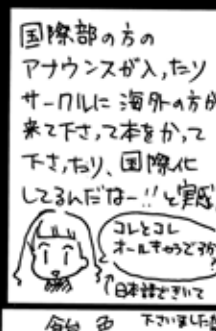 国際部の方の
アナウンスが入ったり
サークルに海外の方が
来て下さって本をかって
下さったり、国際化
してるんだなー!!と実感
コレとコレ
オールキャラですか?
↑日本語できいて
下さいました